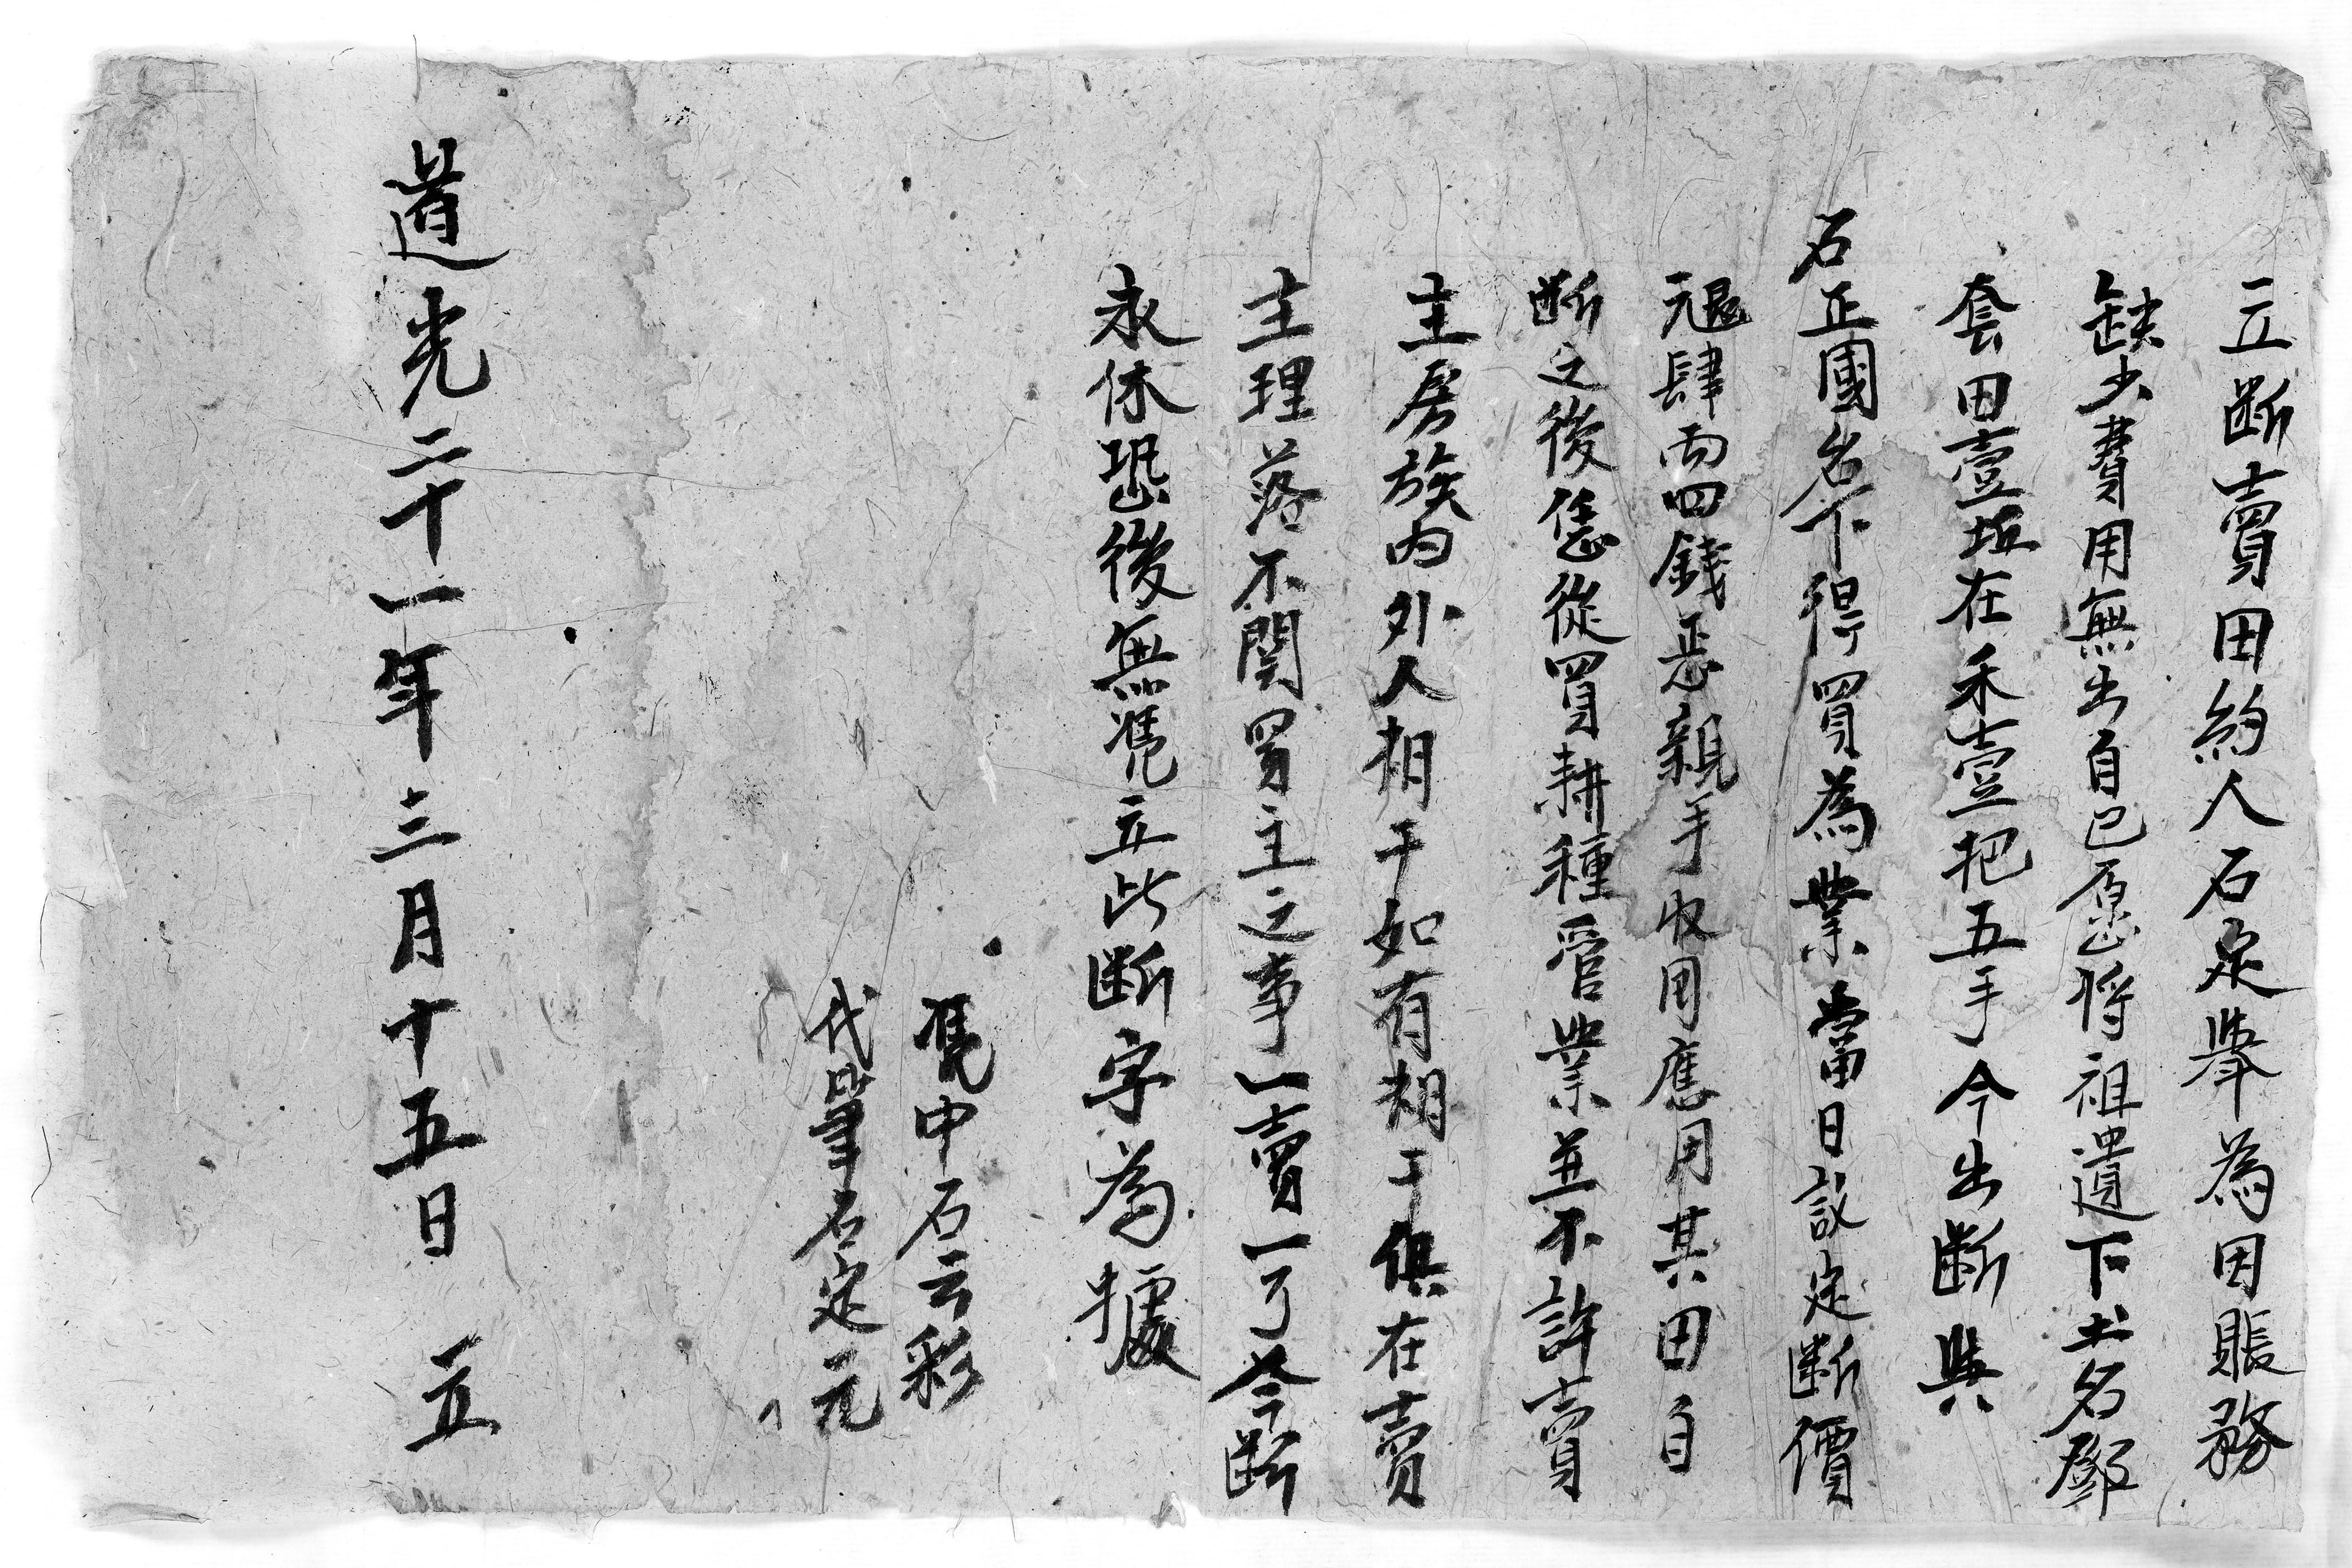 立断賣田約人石定舉為因賬務
缺少費用無出自己愿将祖遺下土名鄧
套田壹坵在禾壹把五手今出断與
石正團名下得買為業當日議定断價
元肆両四錢 親手收用應用其田自
断之後恁從買耕種管業並不許賣
主房族内外人相干如有相干俱在賣
主理落不関買主之事一賣一了發断
永休恐後無凴立此断字為據
凴中石云彩
代筆石定元
道光二十一年三月十五日 立